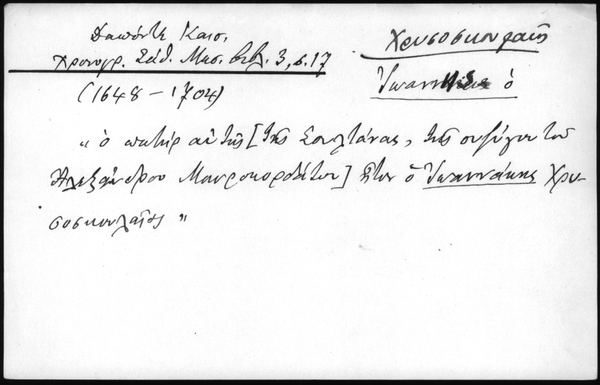 Δαπόντε Καισ.
Χρονογρ. Σάθ. Μεσ. βιβλ. 3, σ. 17
(1648 – 1704)
Χρυσοσκουλαῖος
Ἰωαννάκης ὁ
" ὁ πατὴρ αὐτῆς [τῆς Σουλτάνας, τῆς συζύγου τοῦ
Ἀλεξάνδρου Μαυροκορδάτου] ἦτον ὁ Ἰωαννάκης Χρυ-
σοσκουλαῖος "